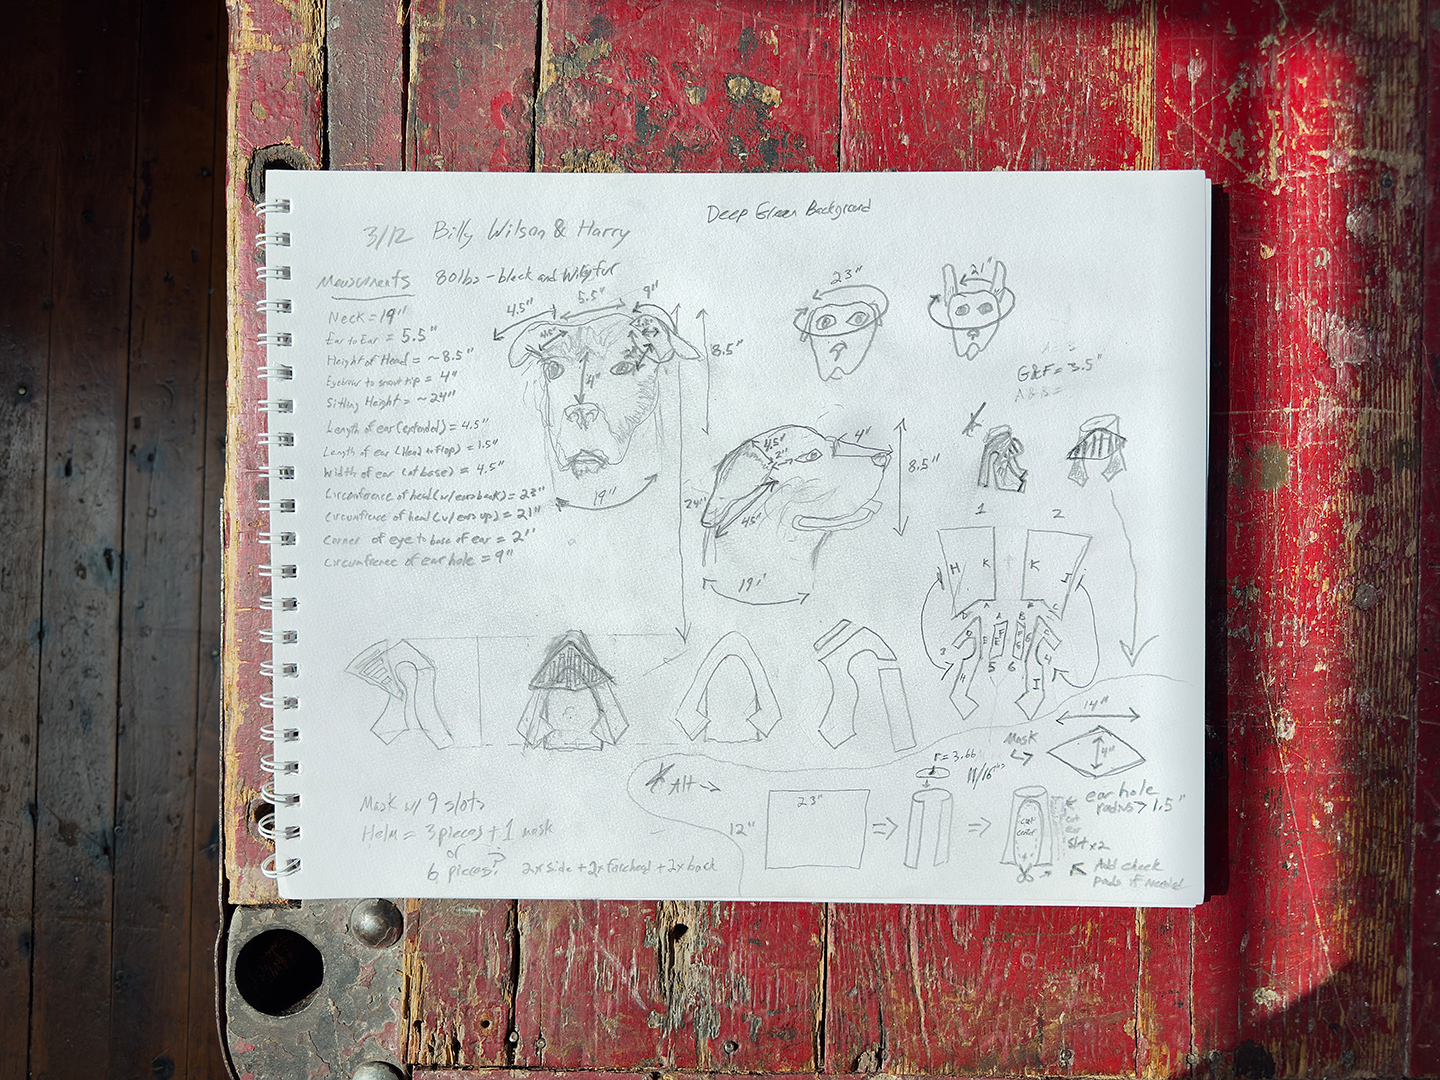 Deep Green Background
3/12 Billy Wilson & Harry
80lbs - black and Wiry fur
Neck = 19"
Ear to Ear = 5.5"
Height of Head = ~8.5"
Eyebrow to snout tip = 4"
Sitting Height = ~24"
Length of ear (extended) = 4.5"
Length of ear (Head to Flop) = 1.5"
Width of ear (at base) = 4.5"
Circumference of head (w/ ears back) = 23"
Circumfrence of head (w/ ears up) = 21"
Corner of eye to base of ear = 2"
Circumfrence of ear hole = 9"
4.5"
5.5"
9"
8.5"
4"
19"
24"
23"
21"
G&F = 3.5"
A & B =
4.5"
2"
4"
8.5"
4.5"
19"
1
2
H K
K I
A
B
D
C
D
E
F
G
C
3
4
5
6
4
I
14"
4"
Mask
r = 3.66
11/16ths
Alt →
23"
12"
cut center
ear hole
radius > 1.5"
cut
ear
slot x2
Add cheek
pads if needed
Mask w/ 9 slots
Helm = 3 pieces + 1 mask
or
6 pieces? 2x side + 2x forehead + 2x back